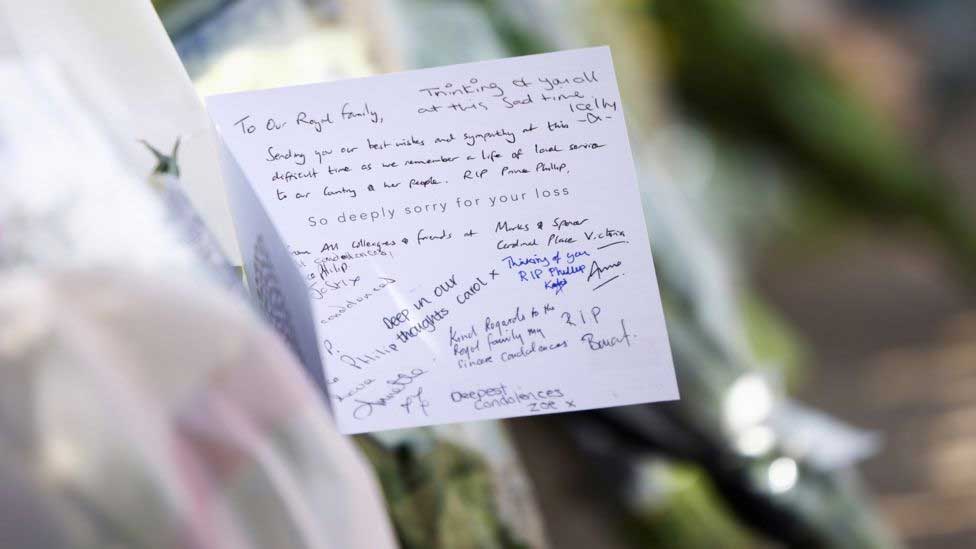 Thinking of you all
at this sad time
To Our Royal Family,
Sending you our best wishes and sympathy at this
difficult time as we remember a life of loyal service
to our Country & her people. RIP Prince Phillip.
So deeply sorry for your loss
All colleagues & friends at Marks & Spencer
Cardinal Place Victoria
condolences
Philip
Thinking of you
RIP Phillip
Anne
condolences
Deep in our
thoughts Carol x
Philip
Kind Regards to the
Royal family my
sincere condolences
RIP
Annette
Deepest
Condolences
Zoe x